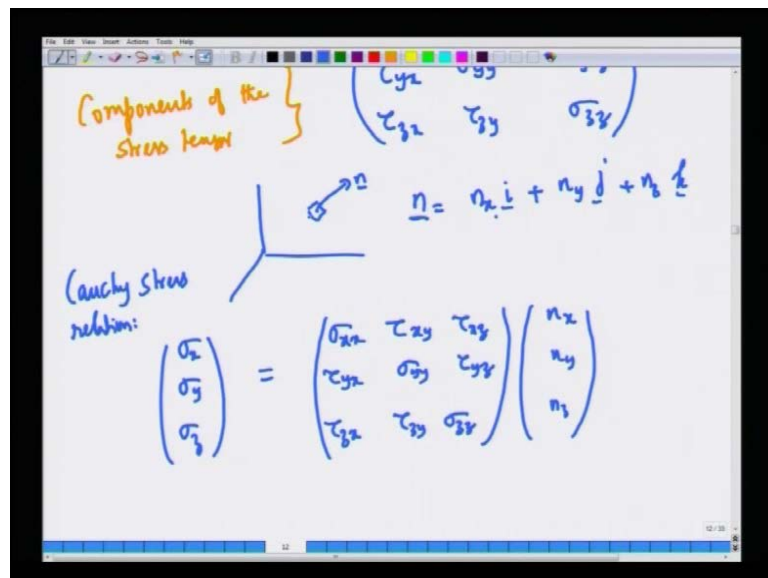 File Edit View Insert Actions Tools Help
Components of the
stress tensor
τyx σyy
τzx τzy σzz
n
n = nx i + ny j + nz k
Cauchy stress
relation:
σx σxx τxy τxz nx
σy = τyx σyy τyz ny
σz τzx τzy σzz nz
12